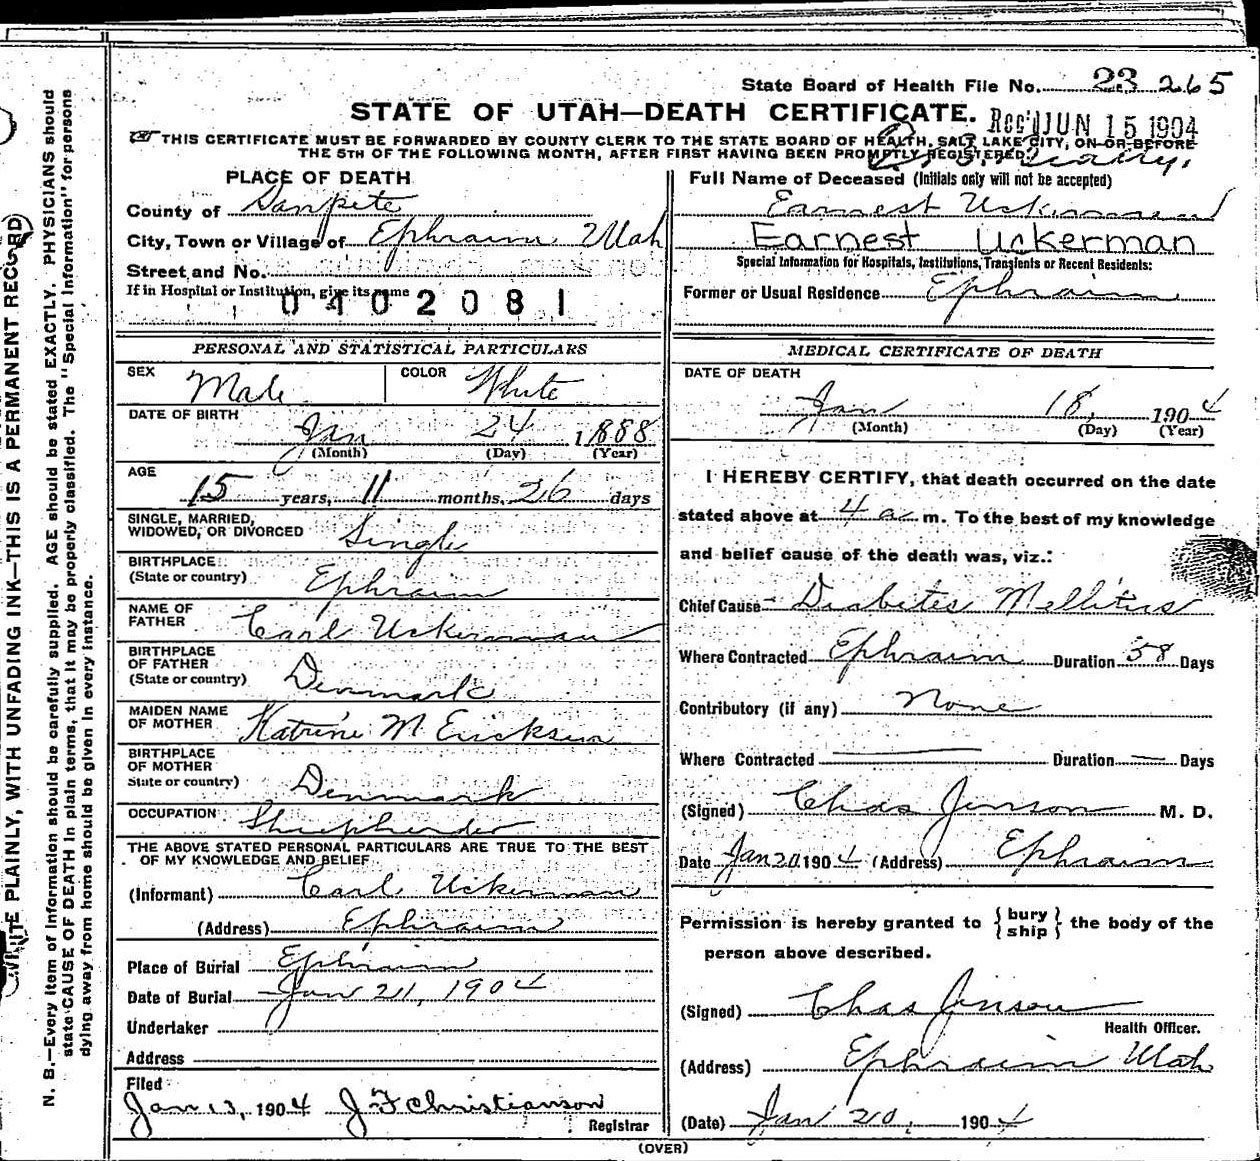 State Board of Health File No. 23 265
STATE OF UTAH—DEATH CERTIFICATE.
Rec'd JUN 15 1904
THIS CERTIFICATE MUST BE FORWARDED BY COUNTY CLERK TO THE STATE BOARD OF HEALTH, SALT LAKE CITY, ON OR BEFORE
THE 5TH OF THE FOLLOWING MONTH, AFTER FIRST HAVING BEEN PROMPTLY REGISTERED.
PLACE OF DEATH
County of Sanpete
City, Town or Village of Ephraim Utah
Street and No.
If in Hospital or Institution, give its name
0402081
Full Name of Deceased (Initials only will not be accepted)
Earnest Uckerman
Earnest Uckerman
Special Information for Hospitals, Institutions, Transients or Recent Residents:
Former or Usual Residence Ephraim
PERSONAL AND STATISTICAL PARTICULARS
SEX Male COLOR White
DATE OF BIRTH
Jan 24 1888
(Month) (Day) (Year)
AGE
15 years, 11 months, 26 days
SINGLE, MARRIED,
WIDOWED, OR DIVORCED Single
BIRTHPLACE
(State or country) Ephraim
NAME OF
FATHER Carl Uckerman
BIRTHPLACE
OF FATHER
(State or country) Denmark
MAIDEN NAME
OF MOTHER Katrine M Erickson
BIRTHPLACE
OF MOTHER
State or country) Denmark
OCCUPATION Shepherder
THE ABOVE STATED PERSONAL PARTICULARS ARE TRUE TO THE BEST
OF MY KNOWLEDGE AND BELIEF
(Informant) Carl Uckerman
(Address) Ephraim
Place of Burial Ephraim
Date of Burial Jan 21, 1904
Undertaker
Address
Filed
Jan 13, 1904 J F Christianson
Registrar
MEDICAL CERTIFICATE OF DEATH
DATE OF DEATH
Jan 18, 1904
(Month) (Day) (Year)
I HEREBY CERTIFY, that death occurred on the date
stated above at 4 a m. To the best of my knowledge
and belief cause of the death was, viz.:
Chief Cause Diabetes Mellitus
Where Contracted Ephraim Duration 58 Days
Contributory (if any) None
Where Contracted — Duration — Days
(Signed) Chas Jenson M. D.
Date Jan 20 1904 (Address) Ephraim
Permission is hereby granted to {bury ship} the body of the
person above described.
(Signed) Chas Jenson
Health Officer.
(Address) Ephraim Utah
(Date) Jan 20, 1904
(OVER)
WRITE PLAINLY, WITH UNFADING INK—THIS IS A PERMANENT RECORD
N. B.—Every item of information should be carefully supplied. AGE should be stated EXACTLY. PHYSICIANS should
state CAUSE OF DEATH in plain terms, that it may be properly classified. The "Special Information" for persons
dying away from home should be given in every instance.